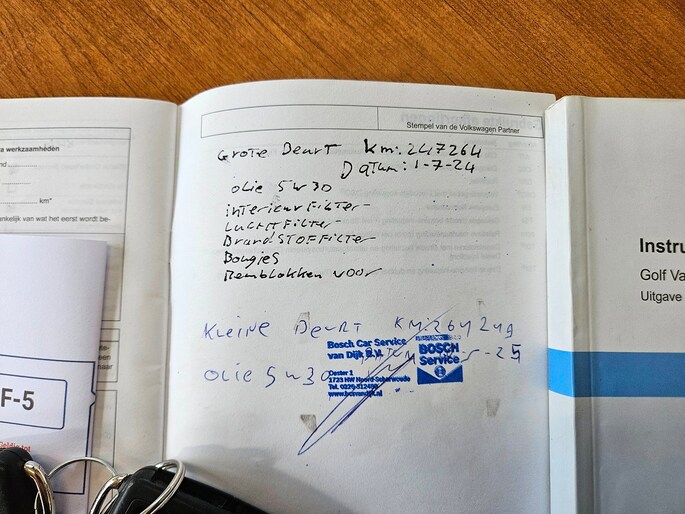 a werkzaamheden
nd
km*
ankelijk van wat het eerst wordt be-
F-5
Stempel van de Volkswagen Partner
Grote Beurt Km: 247264
Datum: 1-7-24
olie 5w30
interieurfilter
Luchtfilter
Brandstoffilter
Bougies
Remblokken voor
Kleine Beurt KM: 264249
olie 5w30
Bosch Car Service
van Dijk B.V.
Oester 1
1723 HW Noord-Scharwoude
BOSCH
Service
Instru
Golf Va
Uitgave